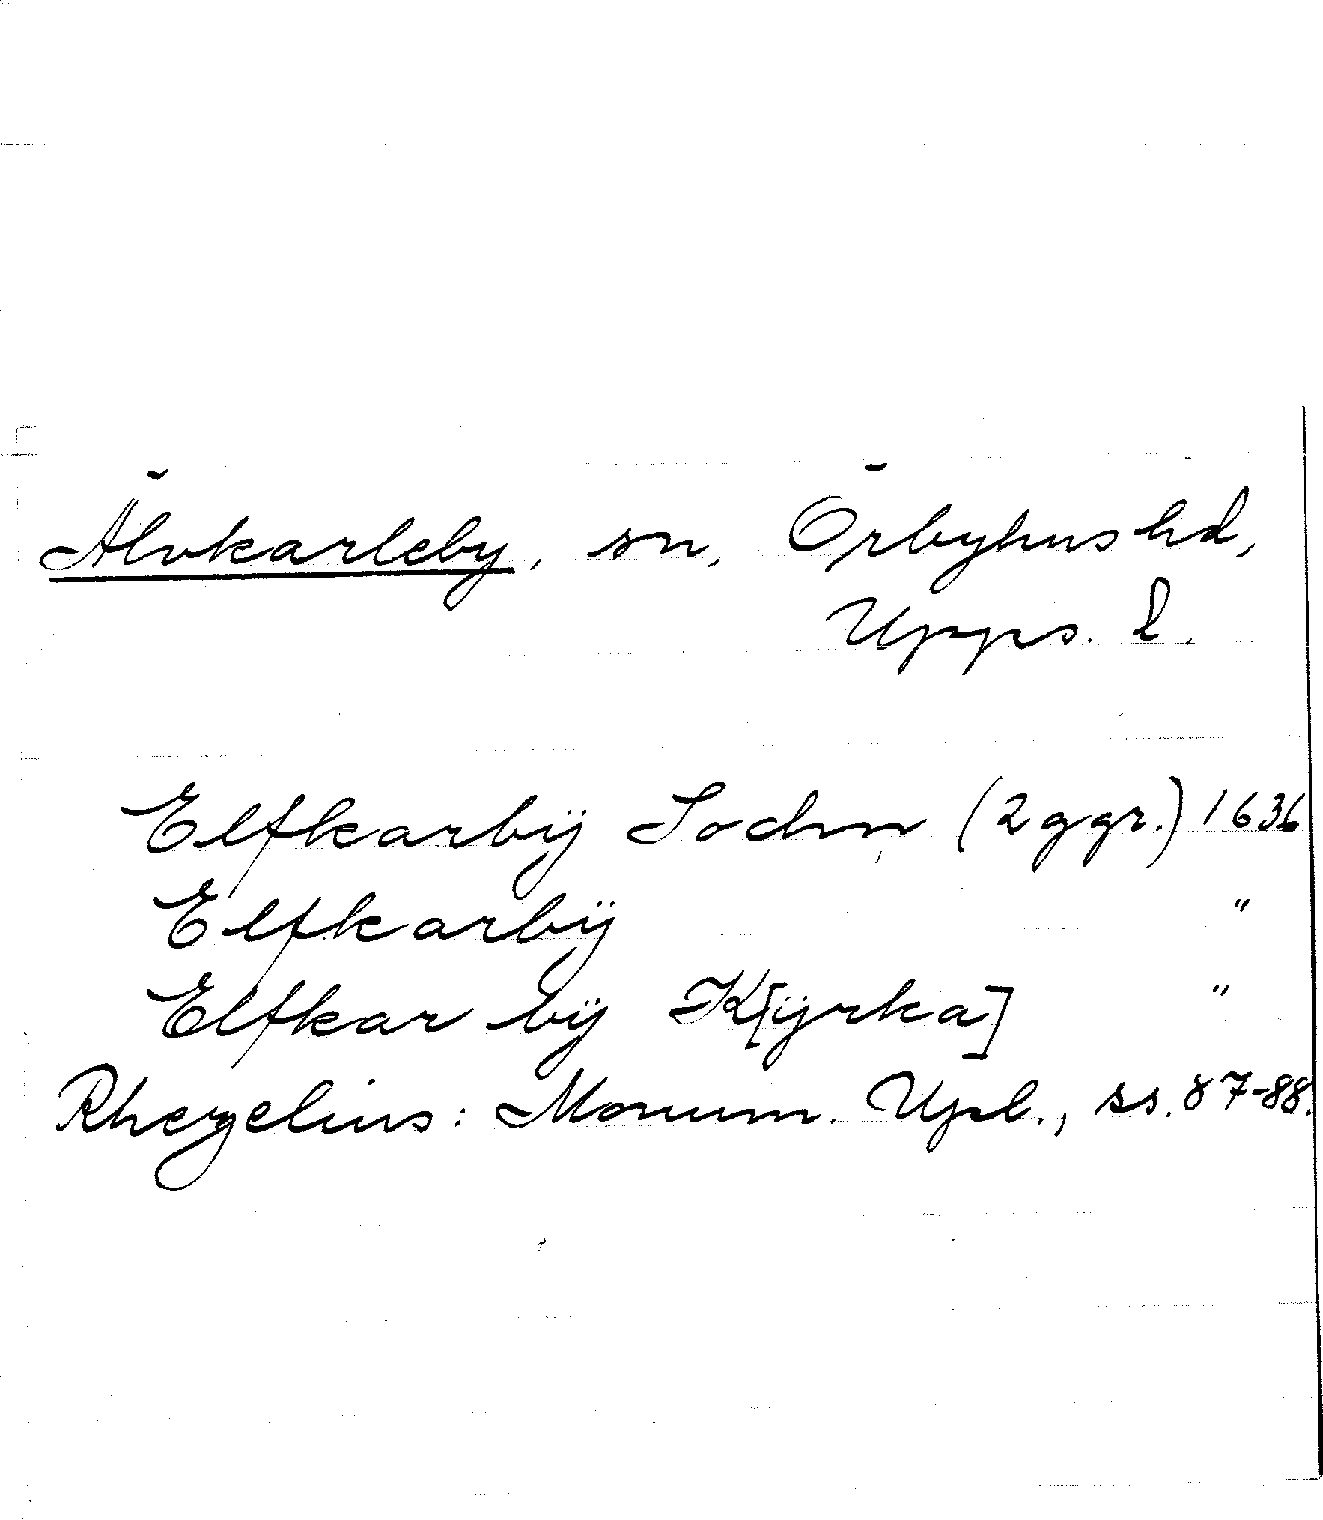 Älvkarleby, sn, Örbyhus hd,
Upps. l.
Elfkarbÿ Sochn (2 ggr.) 1636
Elfkarbÿ "
Elfkar bÿ K[ÿrka] "
Rhezelius: Monum. Upl., ss. 87-88.